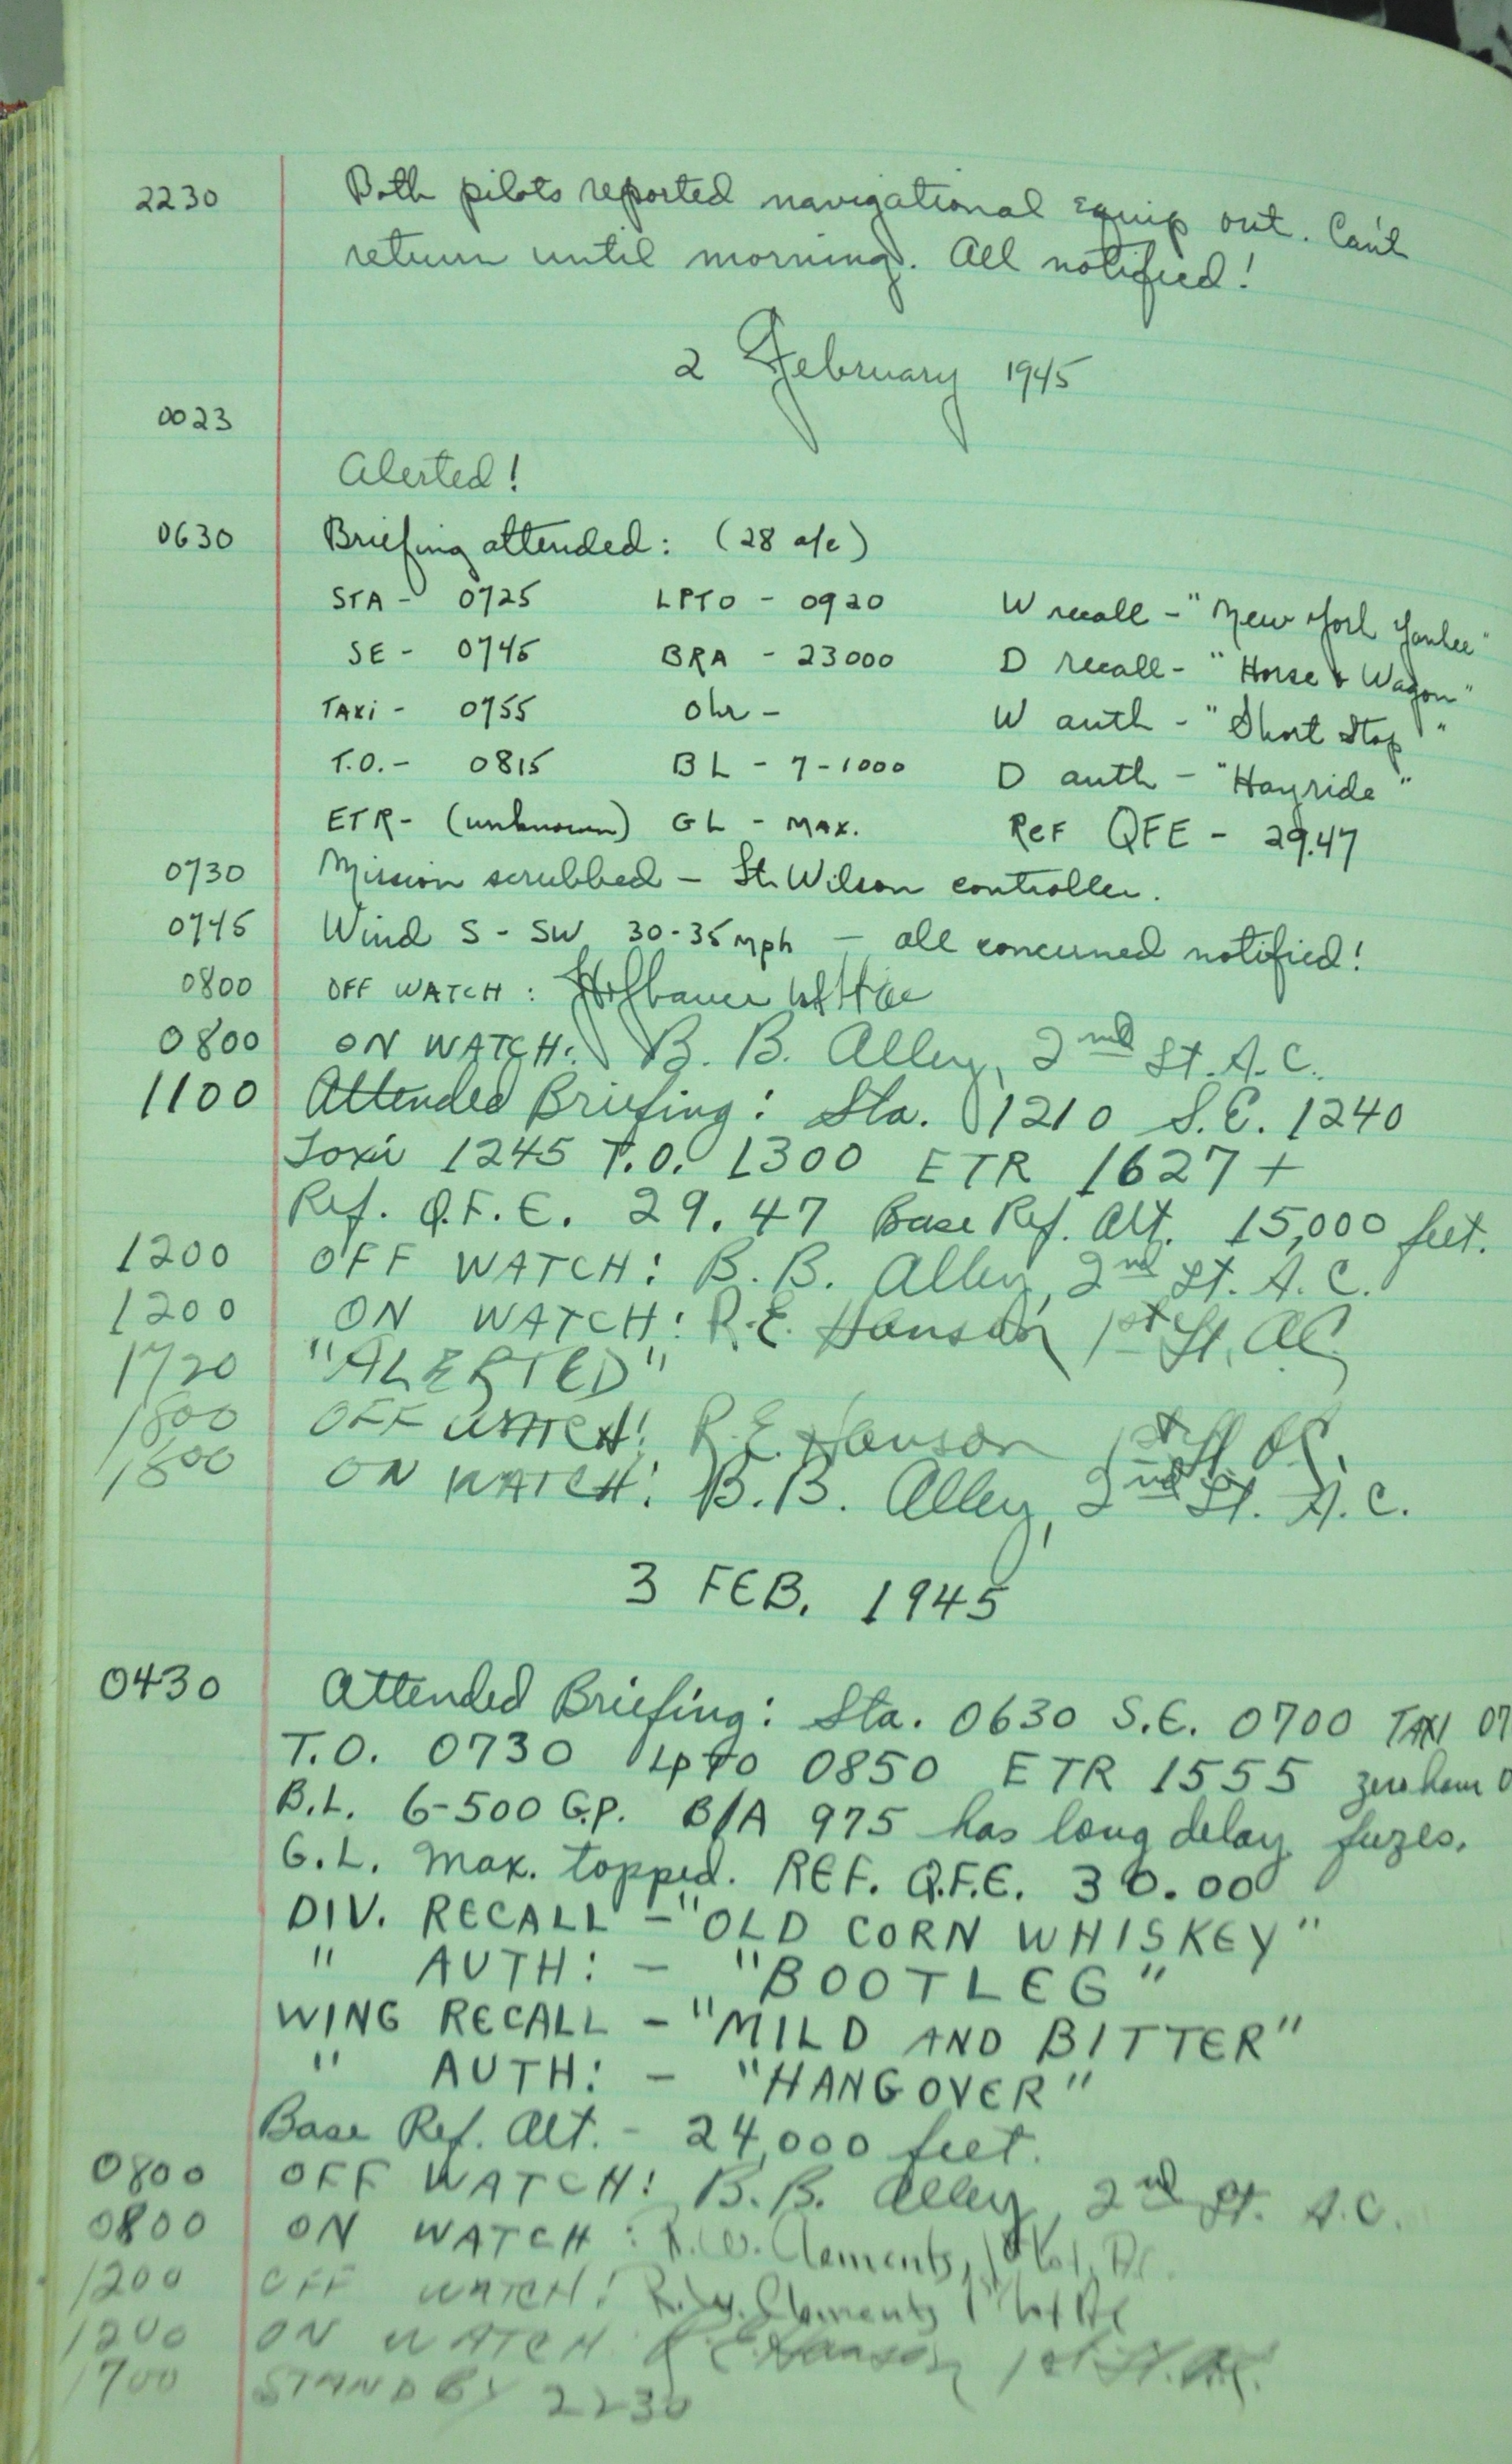 2230 Both pilots reported navigational equip out. Can't
return until morning. All notified!
2 February 1945
0023
Alerted!
0630 Briefing attended: (28 a/c)
STA - 0725 LPTO - 0920 W recall - "New York Yankee"
SE - 0745 BRA - 23000 D recall - "Horse & Wagon"
TAXI - 0755 Ohr - W auth - "Short Stop"
T.O. - 0815 BL - 7-1000 D auth - "Hayride"
ETR - (unknown) GL - MAX. Ref QFE - 29.47
0730 Mission scrubbed - Lt. Wilson controller.
0745 Wind S - SW 30-35 mph - all concerned notified!
0800 OFF WATCH:
0800 ON WATCH: B. B. Alley, 2nd Lt. A.C.
1100 Attended Briefing: Sta. 1210 S.E. 1240
Taxi 1245 T.O. 1300 ETR 1627 +
Ref. Q.F.E. 29.47 Base Ref. Alt. 15,000 feet.
1200 OFF WATCH: B. B. Alley, 2nd Lt. A.C.
1200 ON WATCH: R.E. Hanson 1st Lt. AC
1720 "ALERTED"
1800 OFF WATCH: R.E. Hanson 1st Lt. AC.
1800 ON WATCH: B.B. Alley, 2nd Lt. A.C.
3 FEB. 1945
0430 Attended Briefing: Sta. 0630 S.E. 0700 TAXI 07
T.O. 0730 LPTO 0850 ETR 1555 zero hour 0
B.L. 6-500 G.P. B/A 975 has long delay fuzes.
G.L. Max. topped. REF. Q.F.E. 30.00
DIV. RECALL - "OLD CORN WHISKEY"
" AUTH: - "BOOTLEG"
WING RECALL - "MILD AND BITTER"
" AUTH: - "HANGOVER"
Base Ref. Alt. - 24,000 feet.
0800 OFF WATCH: B.B. Alley, 2nd Lt. A.C.
0800 ON WATCH: R.W. Clements, 1st Lt, AC.
1200 OFF WATCH: R.W. Clements 1st Lt AC
1200 ON WATCH R.E. Hanson 1st Lt. AC.
1700 STANDBY 2230